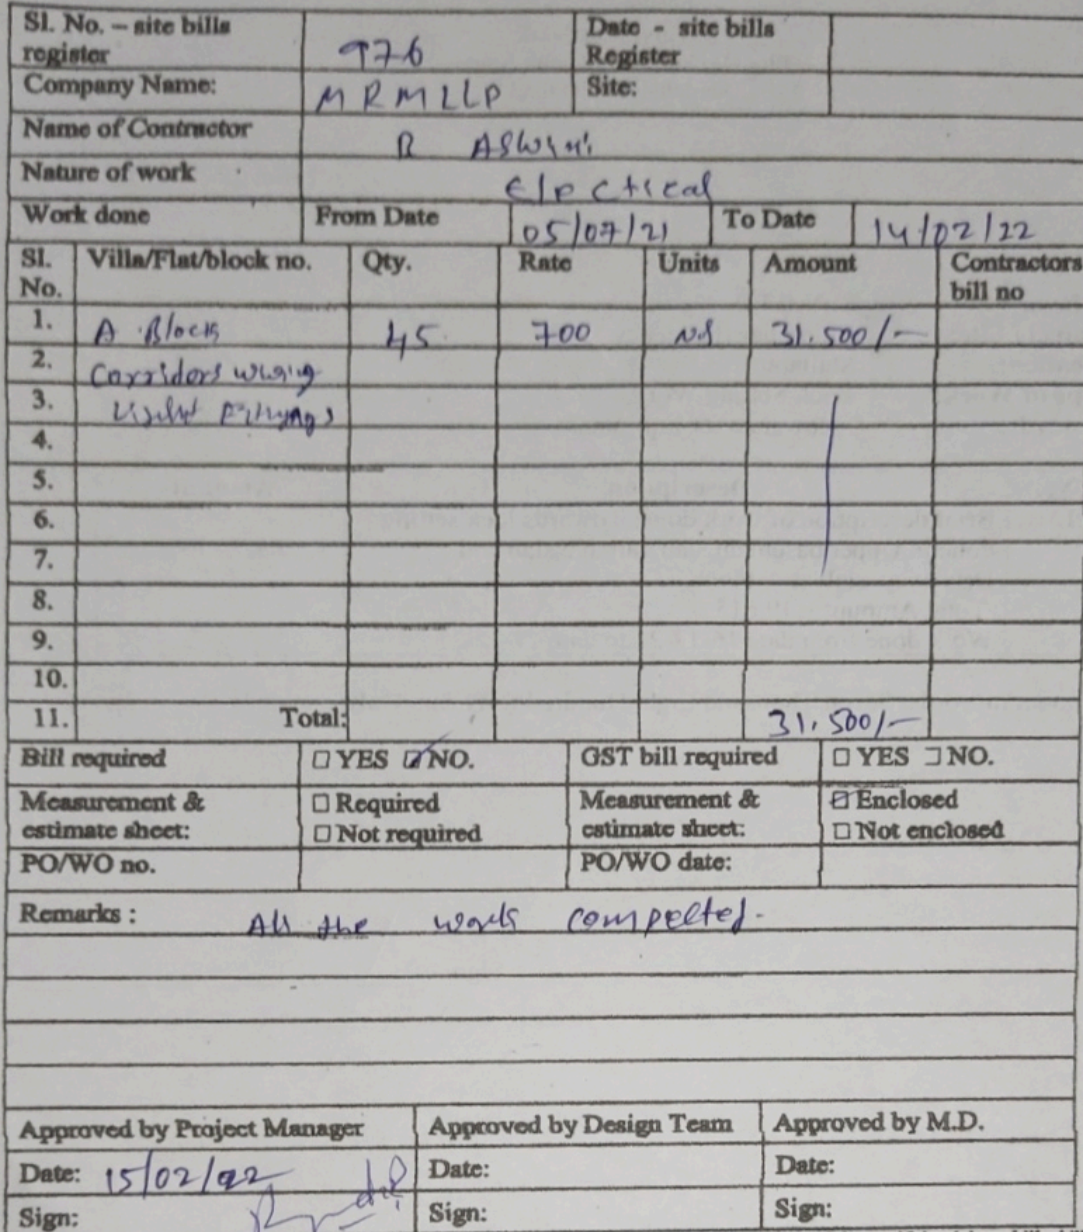 Sl. No. – site bills register 976 Date - site bills Register
Company Name: MRMLLP Site:
Name of Contractor R Aswini
Nature of work Elpctical
Work done From Date 05/07/21 To Date 14/02/22
Sl. No. Villa/Flat/block no. Qty. Rate Units Amount Contractors bill no
1. A Block 45 700 Nos 31.500/-
2. Corridors wiring
3. Light Fittings
4.
5.
6.
7.
8.
9.
10.
11. Total: 31.500/-
Bill required □ YES ☑ NO. GST bill required □ YES □ NO.
Measurement & estimate sheet: □ Required □ Not required Measurement & estimate sheet: ☑ Enclosed □ Not enclosed
PO/WO no. PO/WO date:
Remarks : All the work compelted.
Approved by Project Manager Approved by Design Team Approved by M.D.
Date: 15/02/22 Date: Date:
Sign: Sign: Sign: